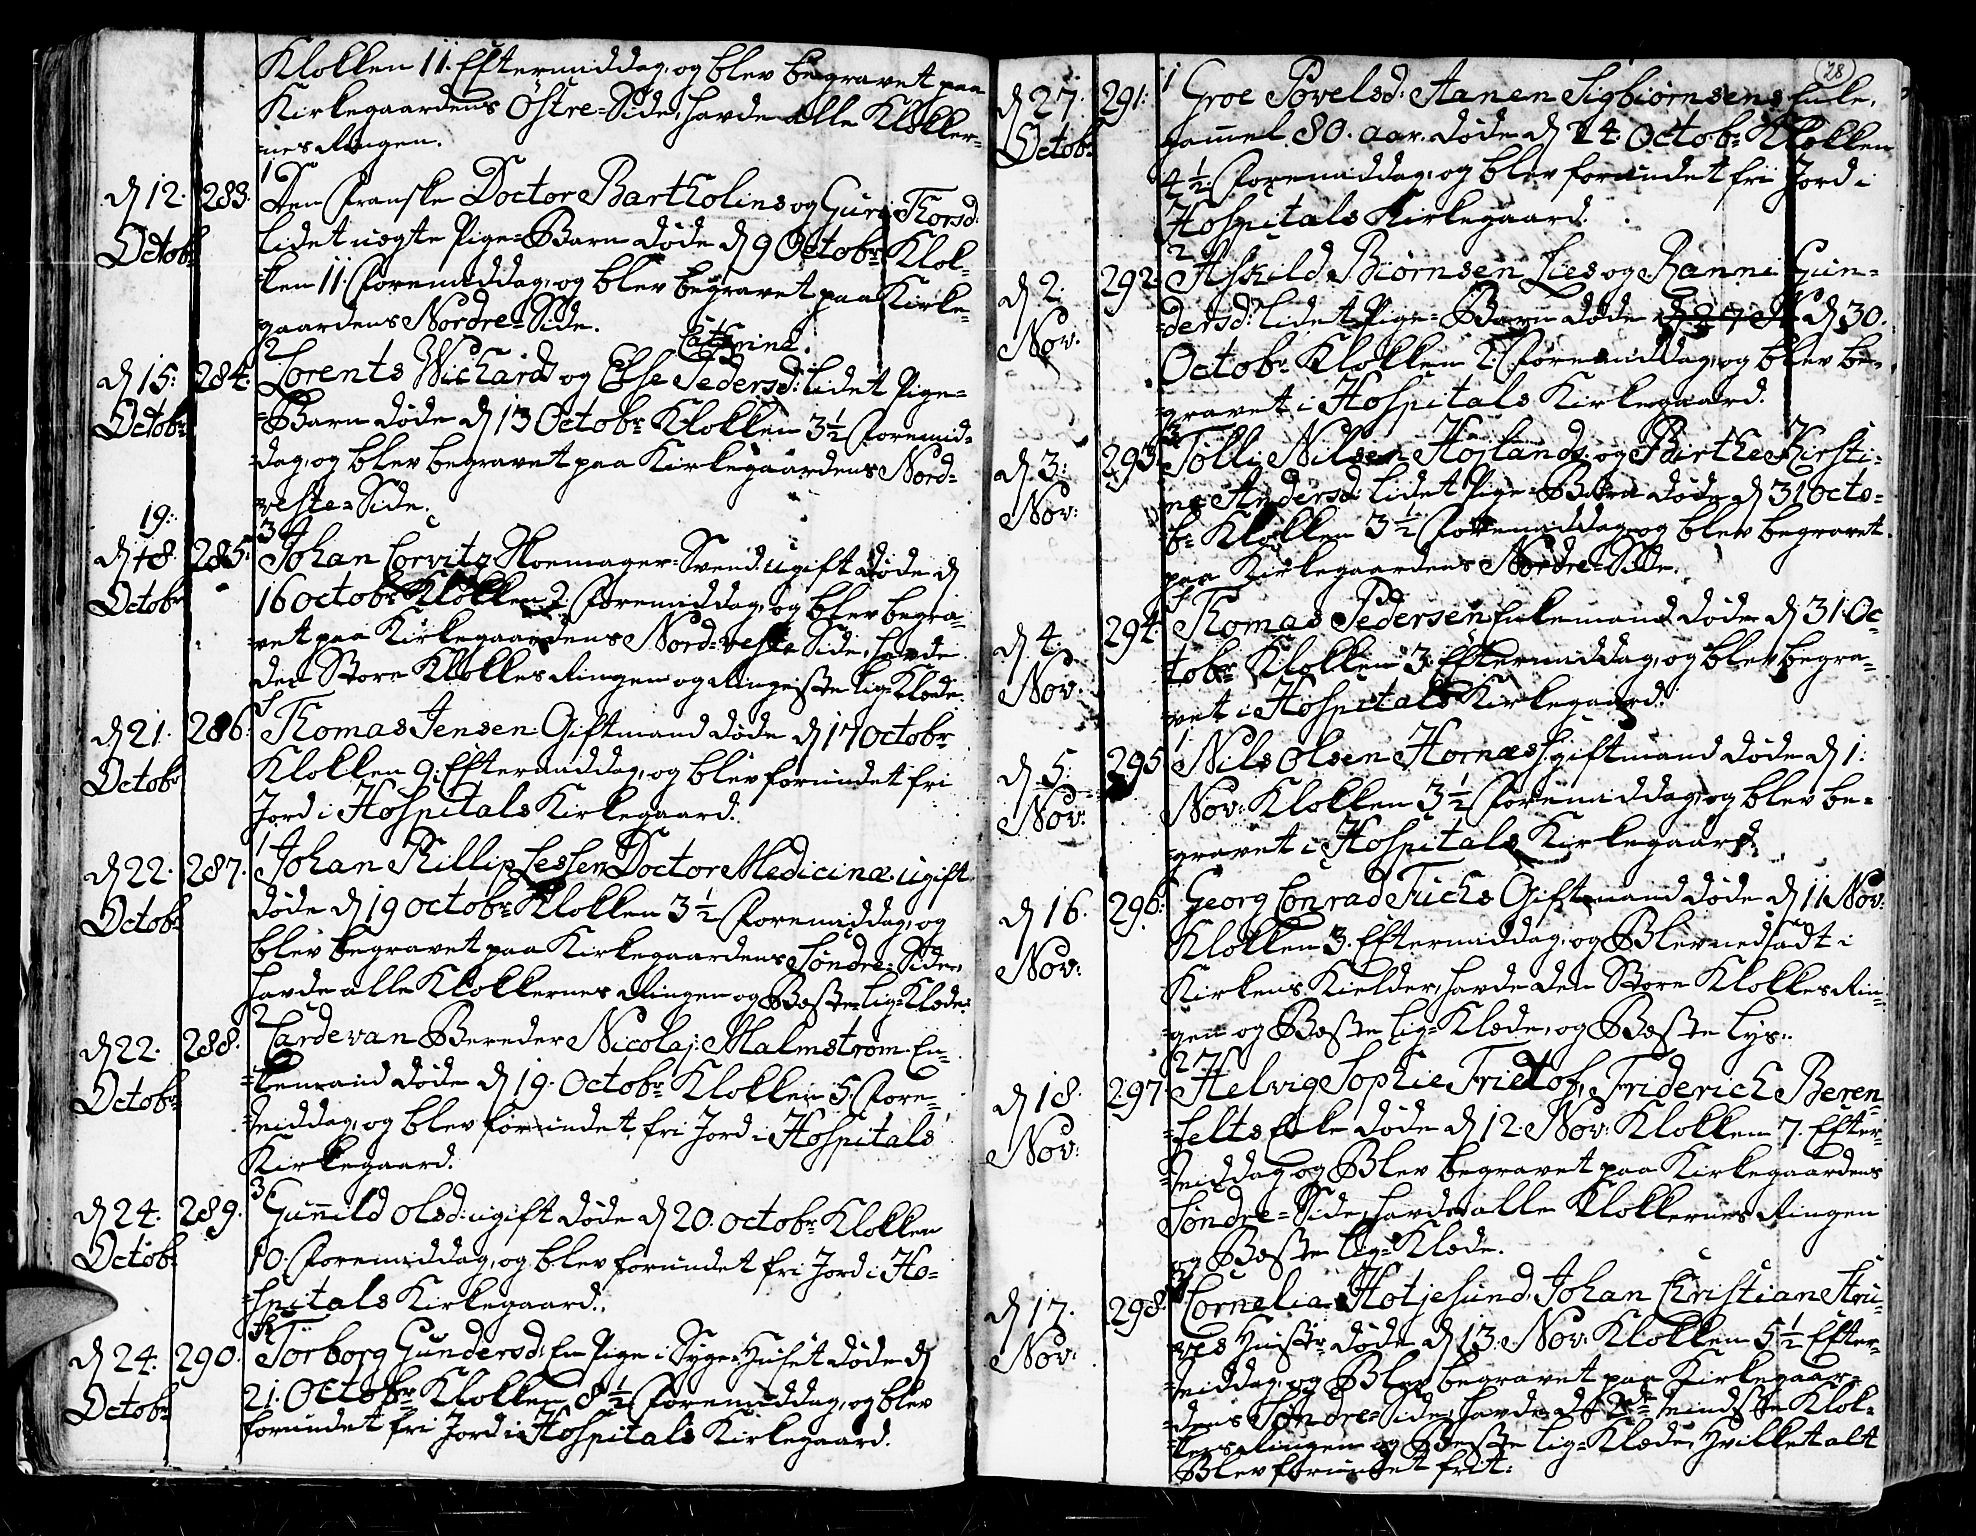 Klokken 11. Eftermiddag, og blev begravet paa
Kirkegaardens Östre=Side, havde alle Klokker-
nes Ringen.
1
d 12. Octobr 283. Den Franske Doctor Bartholins og Guri Thorsd:
lidet uegte Pige=Barn døde d 9 Octobr Klok-
ken 11. Formiddag, og blev begravet paa Kirke-
gaardens Nordre=Side.
Cathrine
2
d 15: Octobr 284. Lorents Wichards og Else Pedersd: lidet Pige-
=Barn døde d 13 Octobr Klokken 3½ Formid-
dag, og blev begravet paa Kirkegaardens Nord-
veste=Side.
19.
3
d 18. Octobr 285. Johan Corvitz Skoemager=Svend ugift døde d
16 Octobr Klokken 2. Formiddag, og blev begra-
vet paa Kirkegaardens Nord=veste Side, havde
den Store Klokkes Ringen og Ringeste Lig=Klæde.
d 21. Octobr 286. Thomas Jensen Giftmand døde d 17 Octobr
Klokken 9. Eftermiddag, og blev forundet fri
Jord i Hospitals Kirkegaard.
1
d 22. Octobr 287. Johan Phillip Lessen Doctor Medicinæ ugift
døde d 19 Octobr Klokken 3½ Formiddag, og
blev begravet paa Kirkegaardens Søndre=Side,
havde alle Klokkernes Ringen og Beste Lig=Klæde.
2
d 22. Octobr 288. Cardevan Bereder Nicolaj Malmstrøm En-
kemand døde d 19. Octobr Klokken 5. For-
middag, og blev forundet fri Jord i Hospitals
Kirkegaard.
3
d 24. Octobr 289. Gunnild Olsd: ugift døde d 20. Octobr Klokken
10. Formiddag, og blev forundet fri Jord i Ho-
spitals Kirkegaard.
d 24. Octobr 290. Torborg Gundersd: En Pige i Syge=Huset døde d
21. Octobr Klokken 8½ Formiddag, og blev
forundet fri Jord i Hospitals Kirkegaard.
28
1
d 27. Octobr 291. Groe Povelsd: Aanen Sigbiørnsens Enke,
gammel 80. aar. døde d 24. Octobr Klokken
4½ Formiddag, og blev forundet fri Jord i
Hospitals Kirkegaard.
2
d 2. Nov: 292. Askild Biørnsen Lies og Ranni Gun-
dersd: lidet Pige=Barn døde d 30.
Octobr Klokken 2. Formiddag, og blev be-
gravet i Hospitals Kirkegaard.
3
d 3. Nov: 293. Tolli Nilsen Højlands og Birthe Kirsti-
ne Andersd: lidet Pige=Barn døde d 31 Octo-
br Klokken 3½ Formiddag, og blev begravet
paa Kirkegaardens Nordre=Side.
d 4. Nov: 294. Thomas Pedersen Enkemand døde d 31. Oc-
tobr Klokken 3. Eftermiddag, og blev begra-
vet i Hospitals Kirkegaard.
1
d 5. Nov: 295. Nils Olsen Hornæs giftmand døde d 1.
Nov: Klokken 3½ Formiddag, og blev be-
gravet i Hospitals Kirkegaard.
d 16. Nov: 296. Georg Conrad Fuchs Giftmand døde d 11. Nov:
Klokken 3. Eftermiddag, og Blev nedsadt i
Kirkens Kielder, havde den Store Klokkes Rin-
gen og Beste Lig=Klæde, og Beste Lys.
2
d 18. Nov: 297. Helvig Sophie Fridrich Beren-
felts Enke døde d 12. Nov: Klokken 7. Efter-
middag og Blev begravet paa Kirkegaardens
Søndre=Side, havde alle Klokkernes Ringen
og Beste Lig=Klæde.
3
d 17. Nov: 298. Cornelia Hotjesund, Johan Christian Stru-
ves Hustr: døde d 13. Nov: Klokken 5½ Efter-
middag, og Blev begravet paa Kirkegaar-
dens Søndre=Side, havde de 2de mindste Klok-
kers Ringen og Beste Lig=Klæde, hvilket alt
Blev forundet frit.